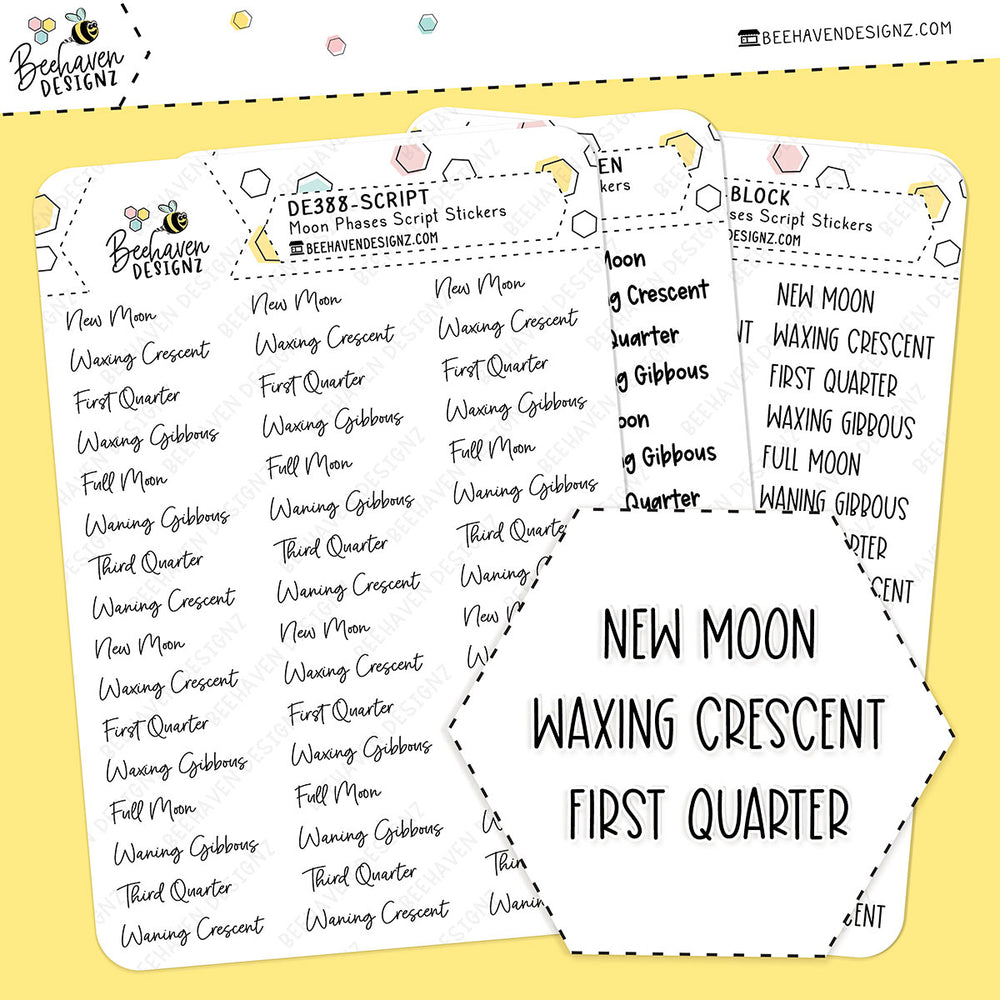 Beehaven
DESIGNZ
BEEHAVENDESIGNZ.COM
Beehaven
DESIGNZ
DE388-SCRIPT
Moon Phases Script Stickers
BEEHAVENDESIGNZ.COM
New Moon New Moon New Moon
Waxing Crescent Waxing Crescent Waxing Crescent
First Quarter First Quarter First Quarter
Waxing Gibbous Waxing Gibbous Waxing Gibbous
Full Moon Full Moon Full Moon
Waning Gibbous Waning Gibbous Waning Gibbous
Third Quarter Third Quarter Third Quarte
Waning Crescent Waning Crescent Waning
New Moon New Moon New
Waxing Crescent Waxing Crescent W
First Quarter First Quarter
Waxing Gibbous Waxing Gibbous
Full Moon Full Moon
Waning Gibbous Waning Gibbous W
Third Quarter Third Quarter Thir
Waning Crescent Waning Crescent Wanin
EN
kers
oon
g Crescent
Quarter
g Gibbous
oon
g Gibbous
Quarter
BLOCK
ses Script Stickers
DESIGNZ.COM
NEW MOON
NT WAXING CRESCENT
FIRST QUARTER
WAXING GIBBOUS
FULL MOON
WANING GIBBOUS
RTER
CENT
ENT
NEW MOON
WAXING CRESCENT
FIRST QUARTER